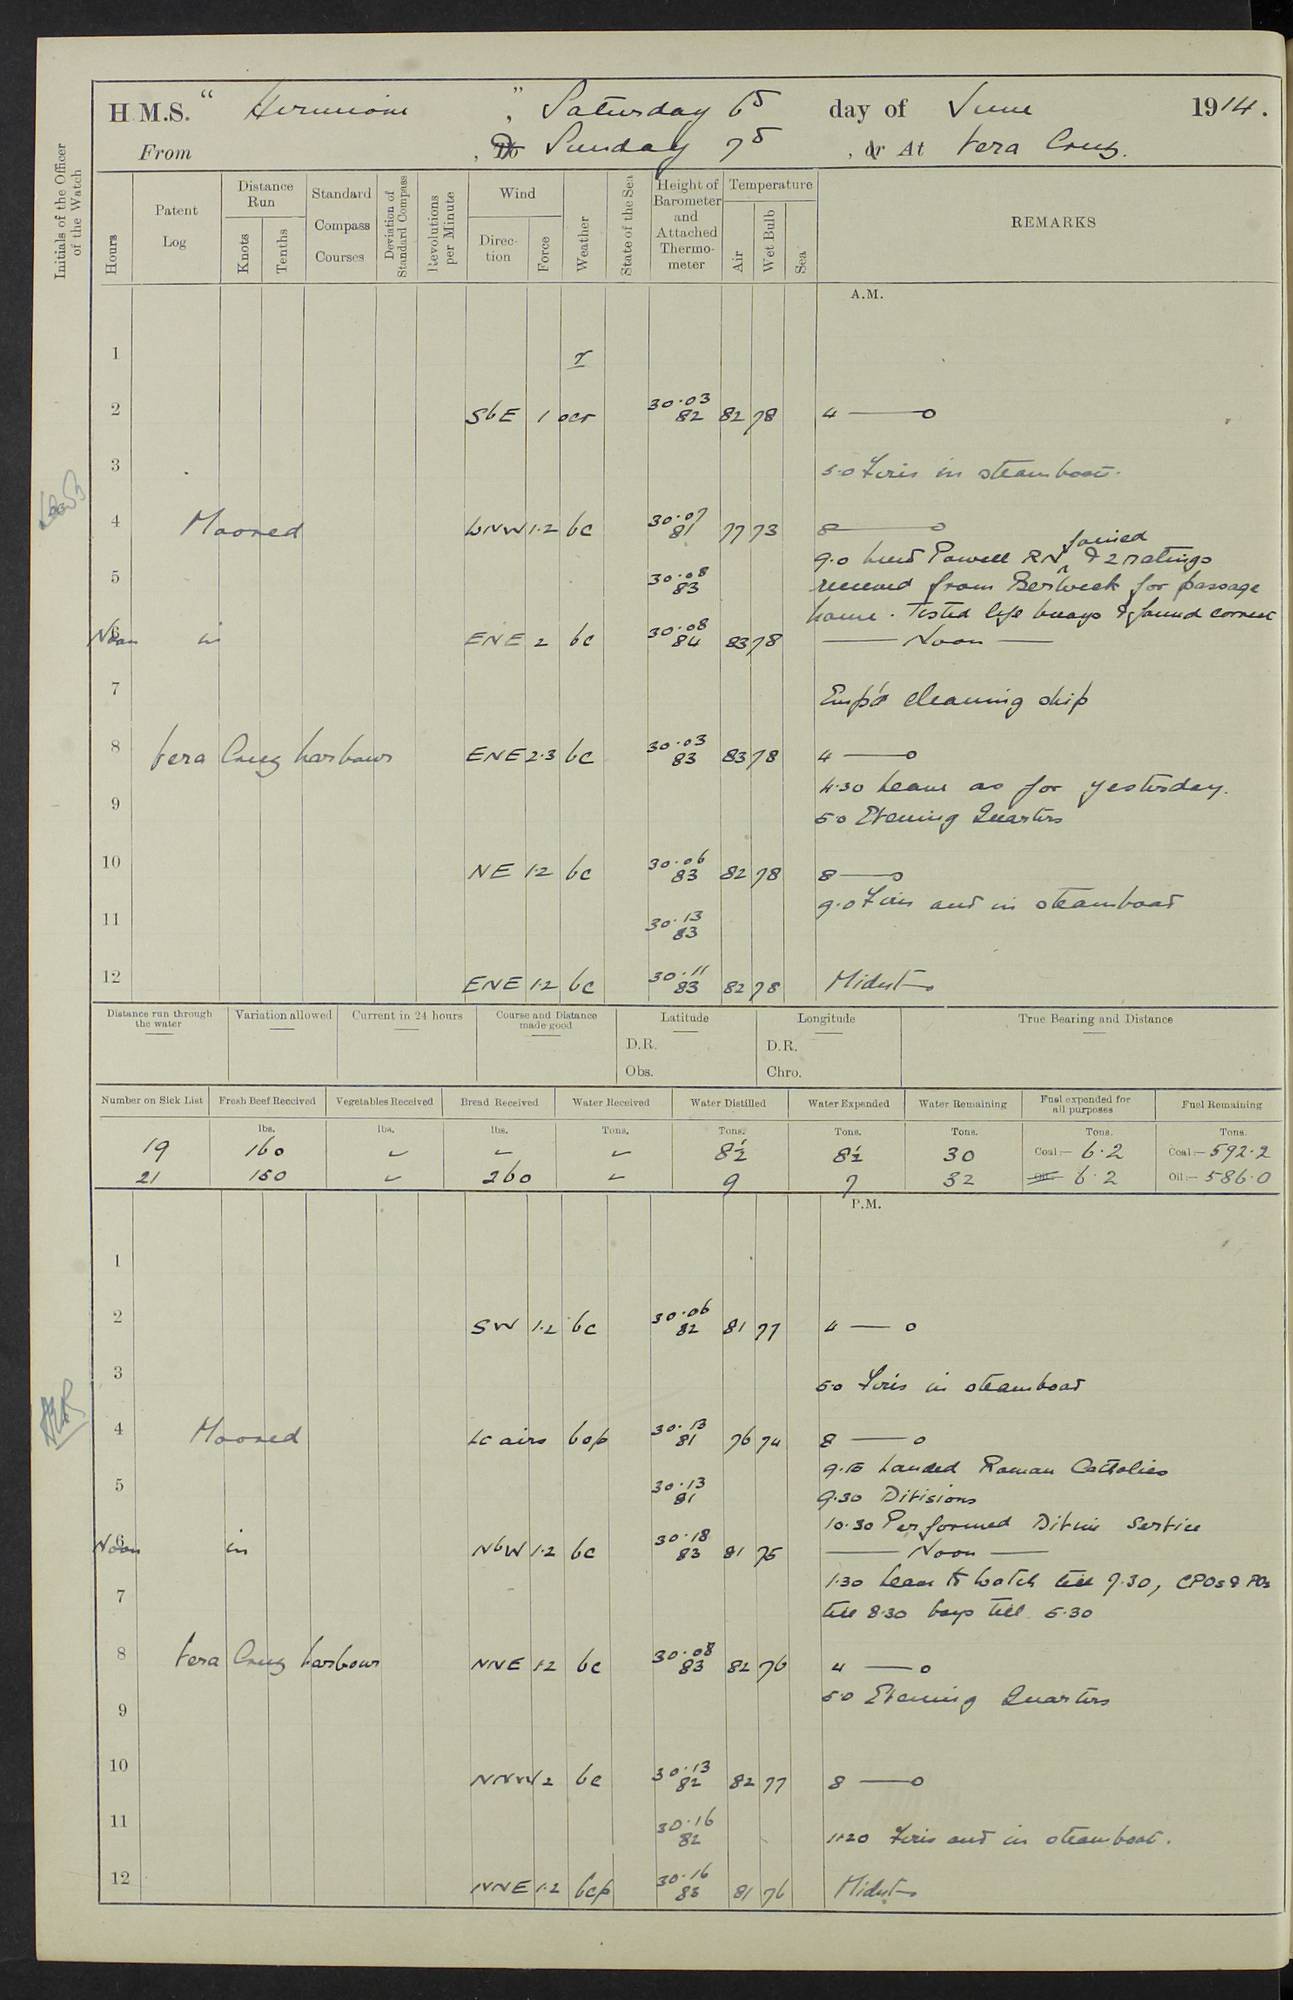 H.M.S. " Hermione ", Saturday 6th day of June 1914.
From , To Sunday 7th , or At Vera Cruz.
Initials of the Officer of the Watch
Hours
Patent Log
Distance Run
Knots
Tenths
Standard Compass Courses
Deviation of Standard Compass
Revolutions per Minute
Wind
Direction
Force
Weather
State of the Sea
Height of Barometer and Attached Thermometer
Temperature
Air
Wet Bulb
Sea
REMARKS
A.M.
1 r
2 SbE 1 ocr 30.03 82 82 78 4
3 5.0 Fires in steamboat.
4 Moored WNW 1.2 bc 30.07 81 77 73 8
9.0 Lieut Powell RN joined & 2 ratings
5 30.08 83 received from Berwick for passage
home. Tested life buoys & found correct
6 Noon in ENE 2 bc 30.08 84 83 78 Noon
7 Emp'd cleaning ship
8 Vera Cruz harbour ENE 2.3 bc 30.03 83 83 78 4
4.30 Leave as for yesterday.
9 5.0 Evening Quarters
10 NE 1.2 bc 30.06 83 82 78 8
9.0 Fires and in steamboat
11 30.13 83
12 ENE 1.2 bc 30.11 83 82 78 Midnt
Distance run through the water
Variation allowed
Current in 24 hours
Course and Distance made good
Latitude
D.R.
Obs.
Longitude
D.R.
Chro.
True Bearing and Distance
Number on Sick List
Fresh Beef Received
Vegetables Received
Bread Received
Water Received
Water Distilled
Water Expended
Water Remaining
Fuel expended for all purposes
Fuel Remaining
lbs. lbs. lbs. Tons. Tons. Tons. Tons. Tons. Tons.
19 160 8½ 8½ 30 Coal:— 6.2 Coal:— 592.2
21 150 260 9 7 32 Oil:— 6.2 Oil:— 586.0
P.M.
1
2 SW 1.2 bc 30.06 82 81 77 4
3 5.0 Fires in steamboat
4 Moored Lt airs bop 30.13 81 76 74 8
9.15 Landed Roman Catholics
5 30.13 81 9.30 Divisions
10.30 Performed Divine Service
6 Noon in NbW 1.2 bc 30.18 83 81 75 Noon
1.30 Leave to watch till 7.30, CPOs & POs
7 till 8.30 boys till 5.30
8 Vera Cruz harbour NNE 1.2 bc 30.08 83 82 76 4
5.0 Evening Quarters
9
10 NNW 2 bc 30.13 82 82 77 8
11 30.16 82 11.20 Fires and in steamboat.
12 NNE 1.2 bcp 30.16 83 81 76 Midnt